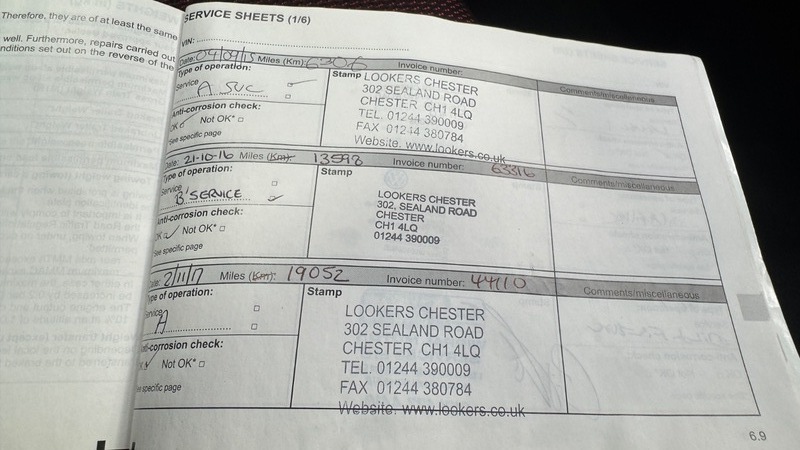 Therefore, they are of at least the same
well. Furthermore, repairs carried out
nditions set out on the reverse of the
SERVICE SHEETS (1/6)
VIN:
Date: 04/09/15 Miles (Km): 6306 Invoice number:
Type of operation:
Service
A SVC
Anti-corrosion check:
OK ✓ Not OK* □
See specific page
Stamp
LOOKERS CHESTER
302 SEALAND ROAD
CHESTER CH1 4LQ
TEL. 01244 390009
FAX 01244 380784
Website. www.lookers.co.uk
Comments/miscellaneous
Date: 21-10-16 Miles (Km): 13598 Invoice number: 63316
Type of operation:
Service
'B' SERVICE
Anti-corrosion check:
OK ✓ Not OK* □
See specific page
Stamp
LOOKERS CHESTER
302, SEALAND ROAD
CHESTER
CH1 4LQ
01244 390009
Comments/miscellaneous
Date: 2/11/17 Miles (Km): 19052 Invoice number: 44110
Type of operation:
Service
A
Anti-corrosion check:
OK ✓ Not OK* □
See specific page
Stamp
LOOKERS CHESTER
302 SEALAND ROAD
CHESTER CH1 4LQ
TEL. 01244 390009
FAX 01244 380784
Website. www.lookers.co.uk
Comments/miscellaneous
6.9